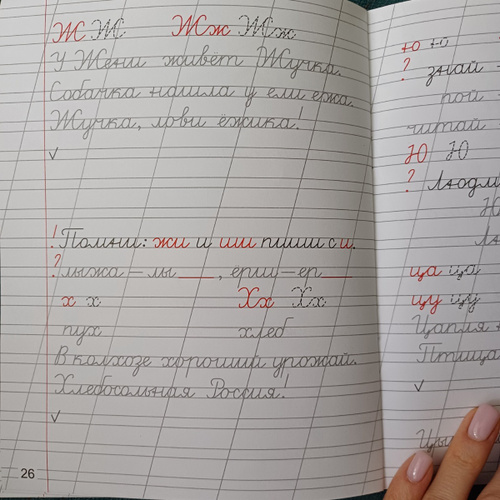 Ж Ж Жж Жж
У Жени живёт Жучка.
Собачка нашла у ели ежа.
Жучка, лови ёжика!
✓
! Помни: жи и ши пиши с и.
? лыжа – лы___, ерш – ер___
х х Хх Хх
пух хлеб
В колхозе хороший урожай.
Хлебосольная Россия!
✓
26
ю ю
? знай –
пой
читай
Ю Ю
? Люди
ща ща
щу щу
Цапля
Птица
✓